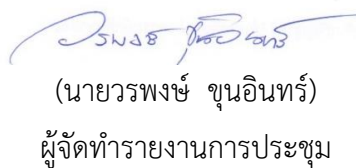 วรพงษ์ ขุนอินทร์
(นายวรพงษ์ ขุนอินทร์)
ผู้จัดทำรายงานการประชุม